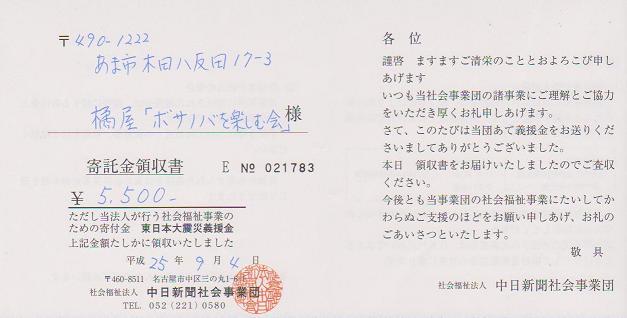 〒490-1222
あま市木田八反田17-3
橘屋「ボサノバを楽しむ会」様
寄託金領収書 E № 021783
¥ 5,500-
ただし当法人が行う社会福祉事業の
ための寄付金 東日本大震災義援金
上記金額たしかに領収いたしました
平成 25 年 9 月 4 日
〒460-8511 名古屋市中区三の丸1-6-1
社会福祉法人 中日新聞社会事業団
TEL. 052 (221) 0580
各位
謹啓 ますますご清栄のこととおよろこび申し
あげます
いつも当社会事業団の諸事業にご理解とご協力
をいただき厚くお礼申しあげます。
さて、このたびは当団あて義援金をお送りくださ
いましてありがとうございました。
本日 領収書をお届けいたしましたのでご査収
ください。
今後とも当事業団の社会福祉事業にたいしてか
わらぬご支援のほどをお願い申しあげ、お礼の
ごあいさつといたします。
敬具
社会福祉法人 中日新聞社会事業団